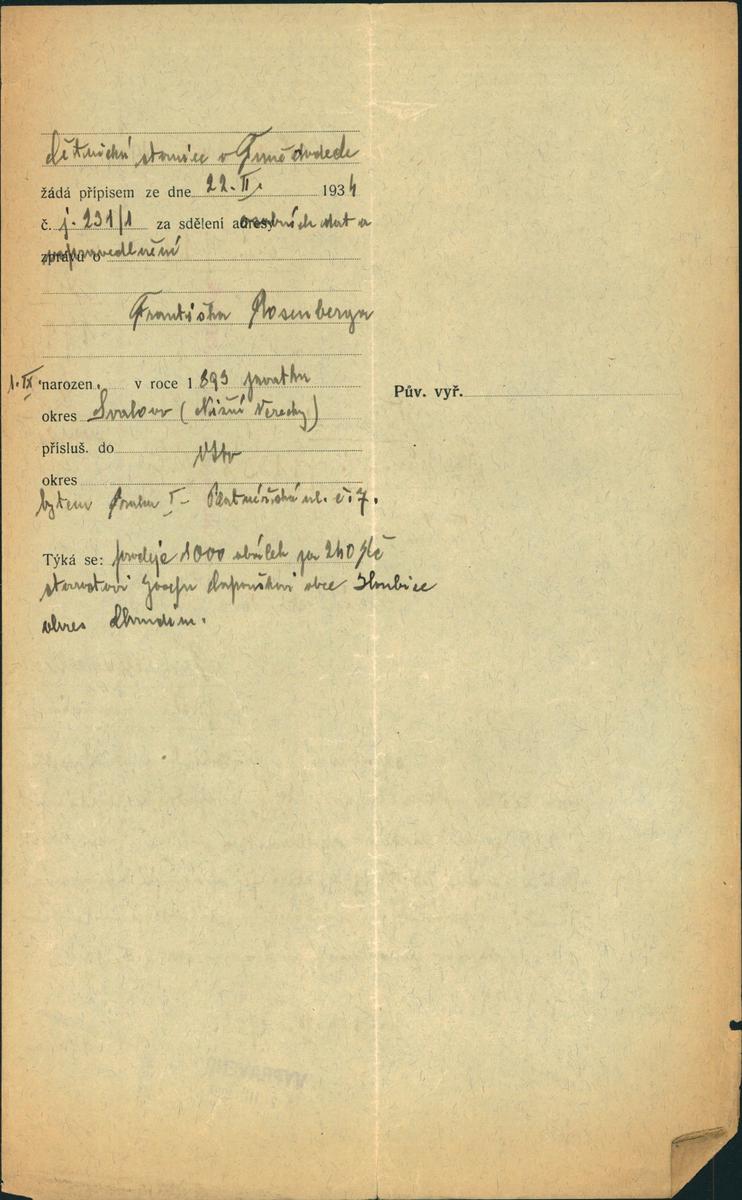 četnická stanice v
žádá přípisem ze dne 22. II. 1934
č. j. 231/1 za sdělení adresy osobních dat a
zprávu o
Františka Rosenberga
1. IX. narozen. v roce 1893
okres Svalava (Nižní Verecky)
přísluš. do
okres
bytem Praha I - Platnéřská ul. č. 7.
Týká se: prodeje 1000 obálek za 240 Kč
starostovi Josefu obce
okres Chrudim.
Pův. vyř.